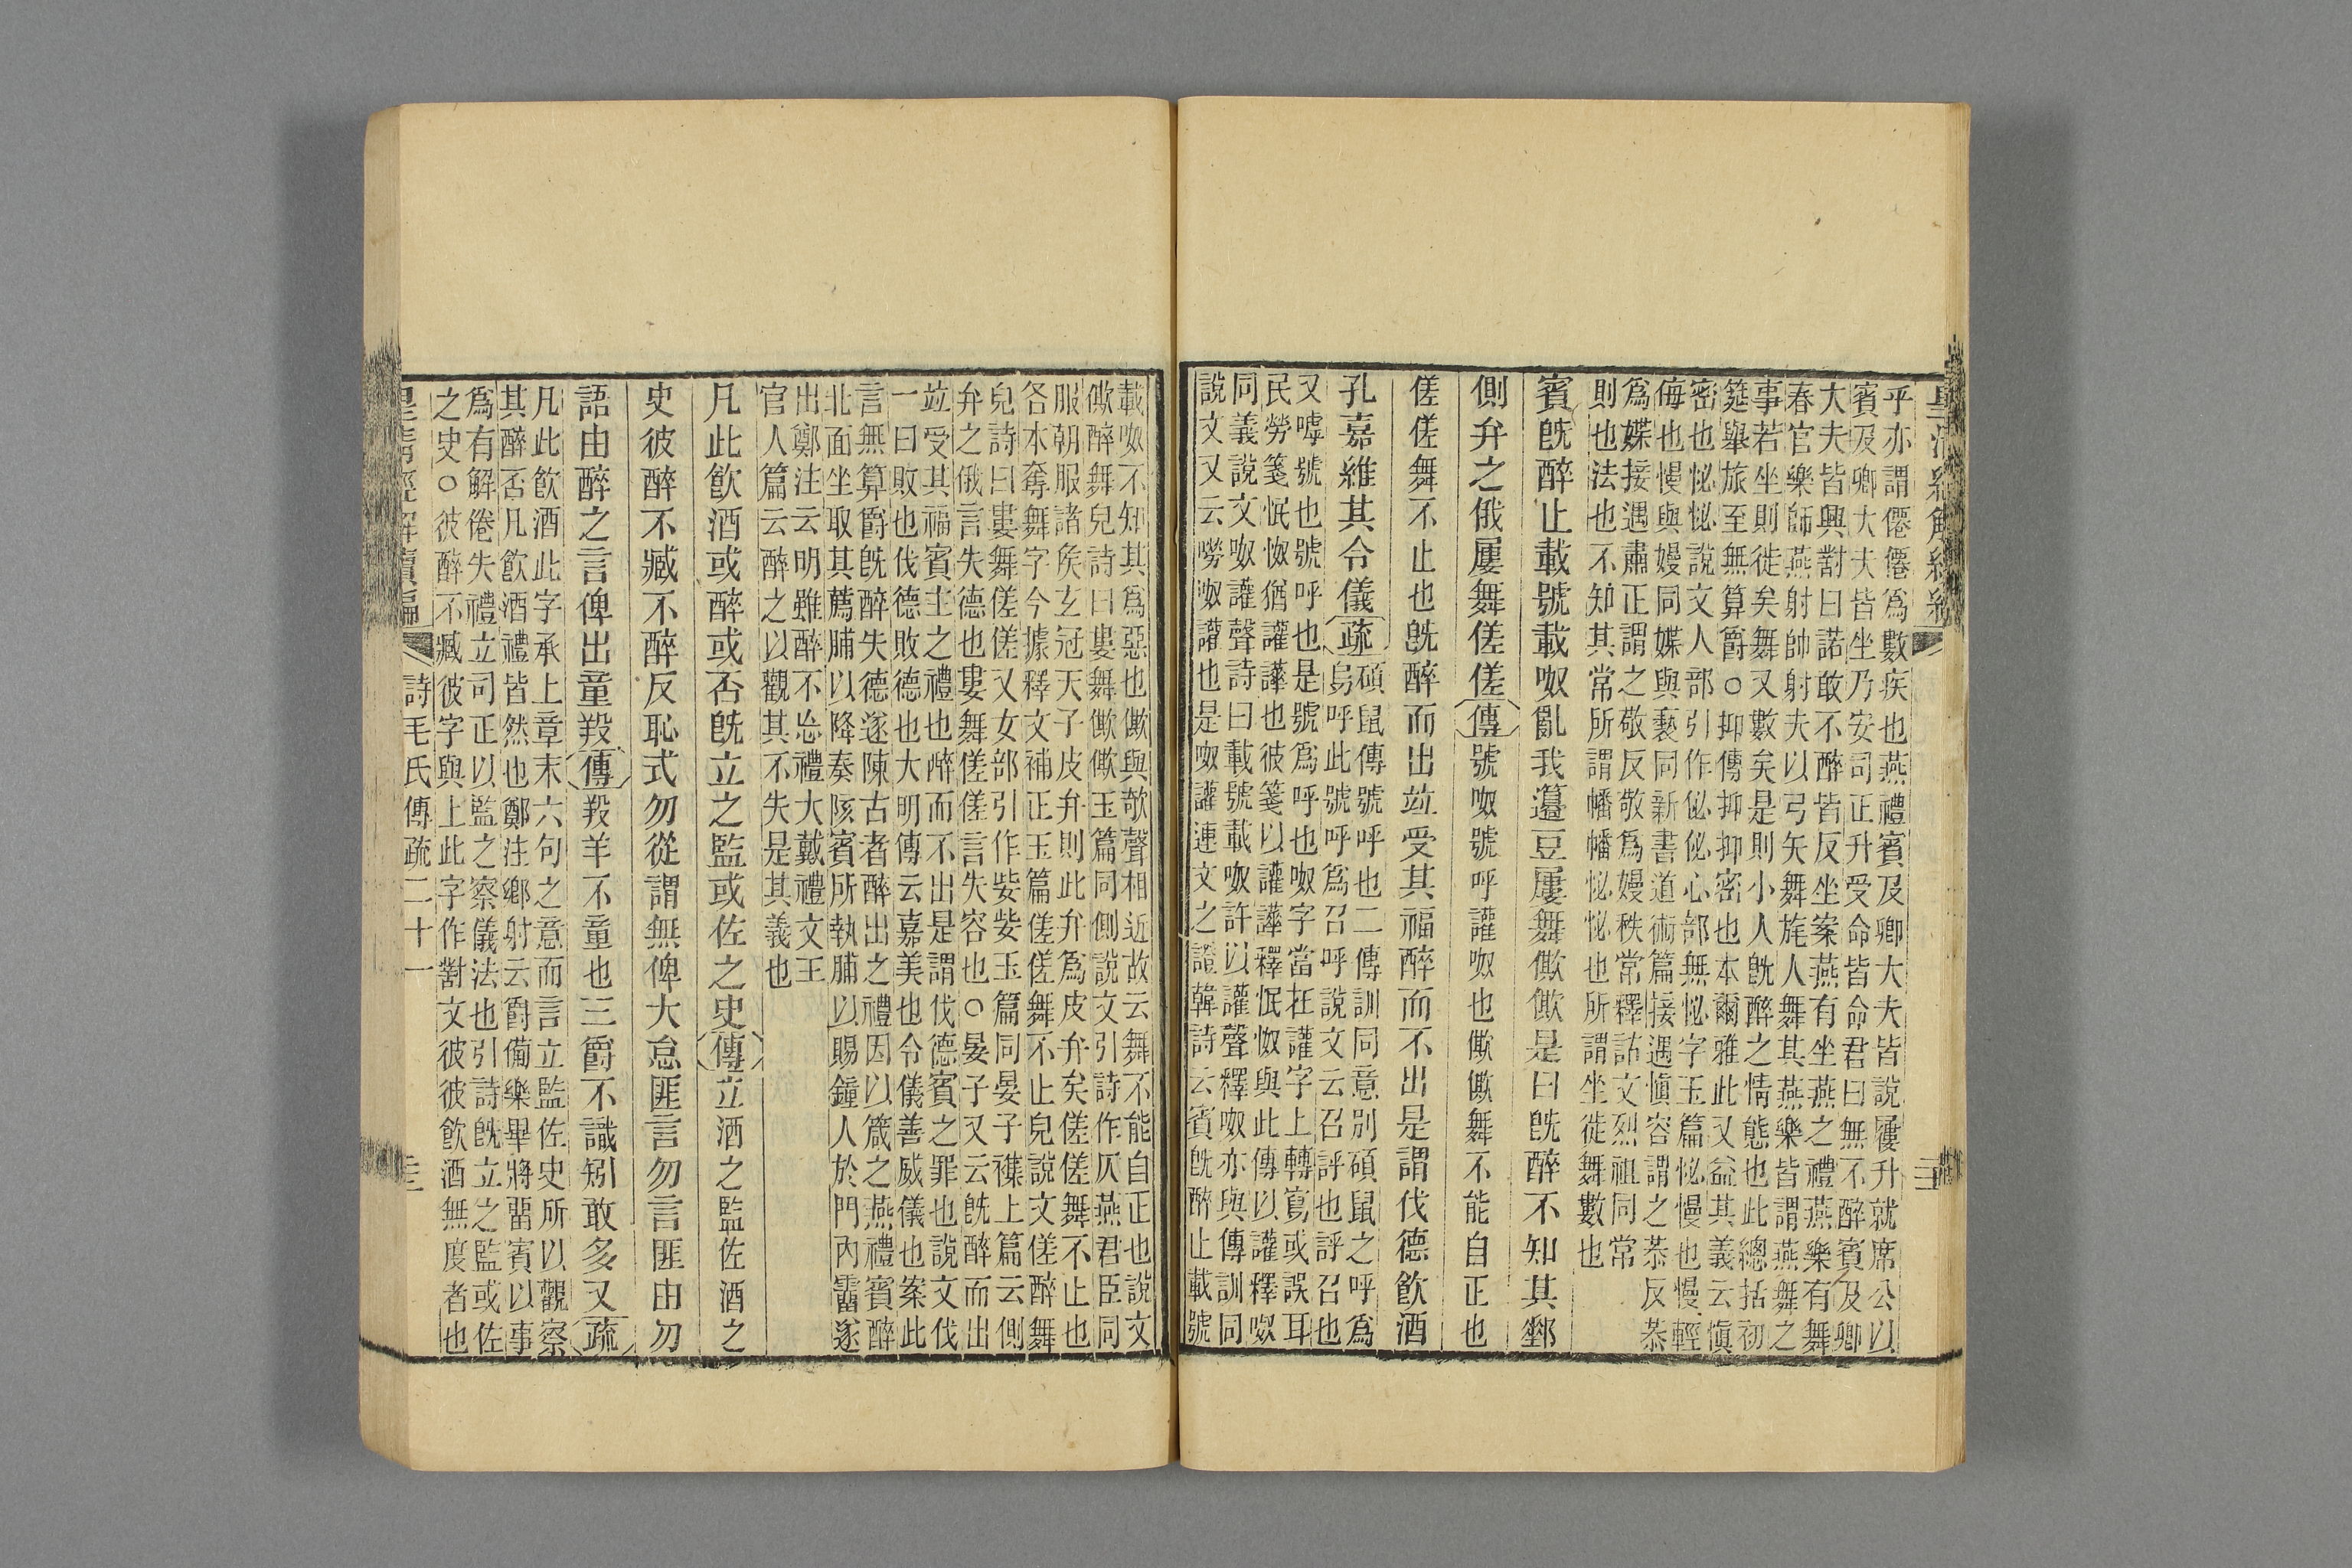 皇清經解續編
三
乎亦謂僊僊爲數疾也燕禮賓及卿大夫皆說屨升就席公以
賓及卿大夫皆坐乃安司正升受命皆命君曰無不醉賓及卿
大夫皆興對曰諾敢不醉皆反坐案燕有坐燕之禮燕樂有舞
春官樂師燕射帥射夫以弓矢舞旄人舞其燕樂皆謂燕舞之
事若坐則徙矣舞又數矣是則小人旣醉之情態也此總括初
筵舉旅至無算爵○抑傳抑抑密也本爾雅此又益其義云愼
密也怭怭說文人部引作佖佖心部無怭字玉篇怭慢也慢輕
侮也慢與嫚同媟與褻同新書道術篇接遇愼容謂之恭反恭
爲媟接遇肅正謂之敬反敬爲嫚秩常釋詁文烈祖同常
則也法也不知其常所謂幡幡怭怭也所謂坐徙舞數也
賓旣醉止載號載呶亂我籩豆屢舞僛僛是曰旣醉不知其郵
側弁之俄屢舞傞傞傳號呶號呼讙呶也僛僛舞不能自正也
傞傞舞不止也旣醉而出竝受其福醉而不出是謂伐德飲酒
孔嘉維其令儀疏碩鼠傳號呼也二傳訓同意別碩鼠之呼爲
烏呼此號呼爲召呼說文云召評也評召也
又嘑號也號呼也是號爲呼也呶字當在讙字上轉寫或誤耳
民勞箋惛怓猶讙譁也彼箋以讙譁釋惛怓與此傳以讙釋呶
同義說文呶讙聲詩曰載號載呶許以讙聲釋呶亦與傳訓同
說文又云嘮呶讙也是呶讙連文之證韓詩云賓旣醉止載號
載呶不知其爲惡也僛與欹聲相近故云舞不能自正也說文
僛醉舞皃詩曰婁舞僛僛玉篇同側說文引詩作仄燕君臣同
服朝服諸矦玄冠天子皮弁則此弁爲皮弁矣傞傞舞不止也
各本奪舞字今據釋文補正玉篇傞傞舞不止皃說文傞醉舞
皃詩曰婁舞傞傞又女部引作姕姕玉篇同晏子襍上篇云側
弁之俄言失德也婁舞傞傞言失容也○晏子又云旣醉而出
竝受其福賓主之禮也醉而不出是謂伐德賓之罪也說文伐
一曰敗也伐德敗德也大明傳云嘉美也令儀善威儀也案此
言無算爵旣醉失德遂陳古者醉出之禮因以箴之燕禮賓醉
北面坐取其薦脯以降奏陔賓所執脯以賜鐘人於門內霤遂
出鄭注云明雖醉不忘禮大戴禮文王
官人篇云醉之以觀其不失是其義也
凡此飲酒或醉或否旣立之監或佐之史傳立酒之監佐酒之
史彼醉不臧不醉反恥式勿從謂無俾大怠匪言勿言匪由勿
語由醉之言俾出童羖傳羖羊不童也三爵不識矧敢多又疏
凡此飲酒此字承上章末六句之意而言立監佐史所以觀察
其醉否凡飲酒禮皆然也鄭注鄉射云爵備樂畢將畱賓以事
爲有解倦失禮立司正以監之察儀法也引詩旣立之監或佐
之史○彼醉不臧彼字與上此字作對文彼彼飲酒無度者也
皇淸經解續編
詩毛氏傳疏二十一